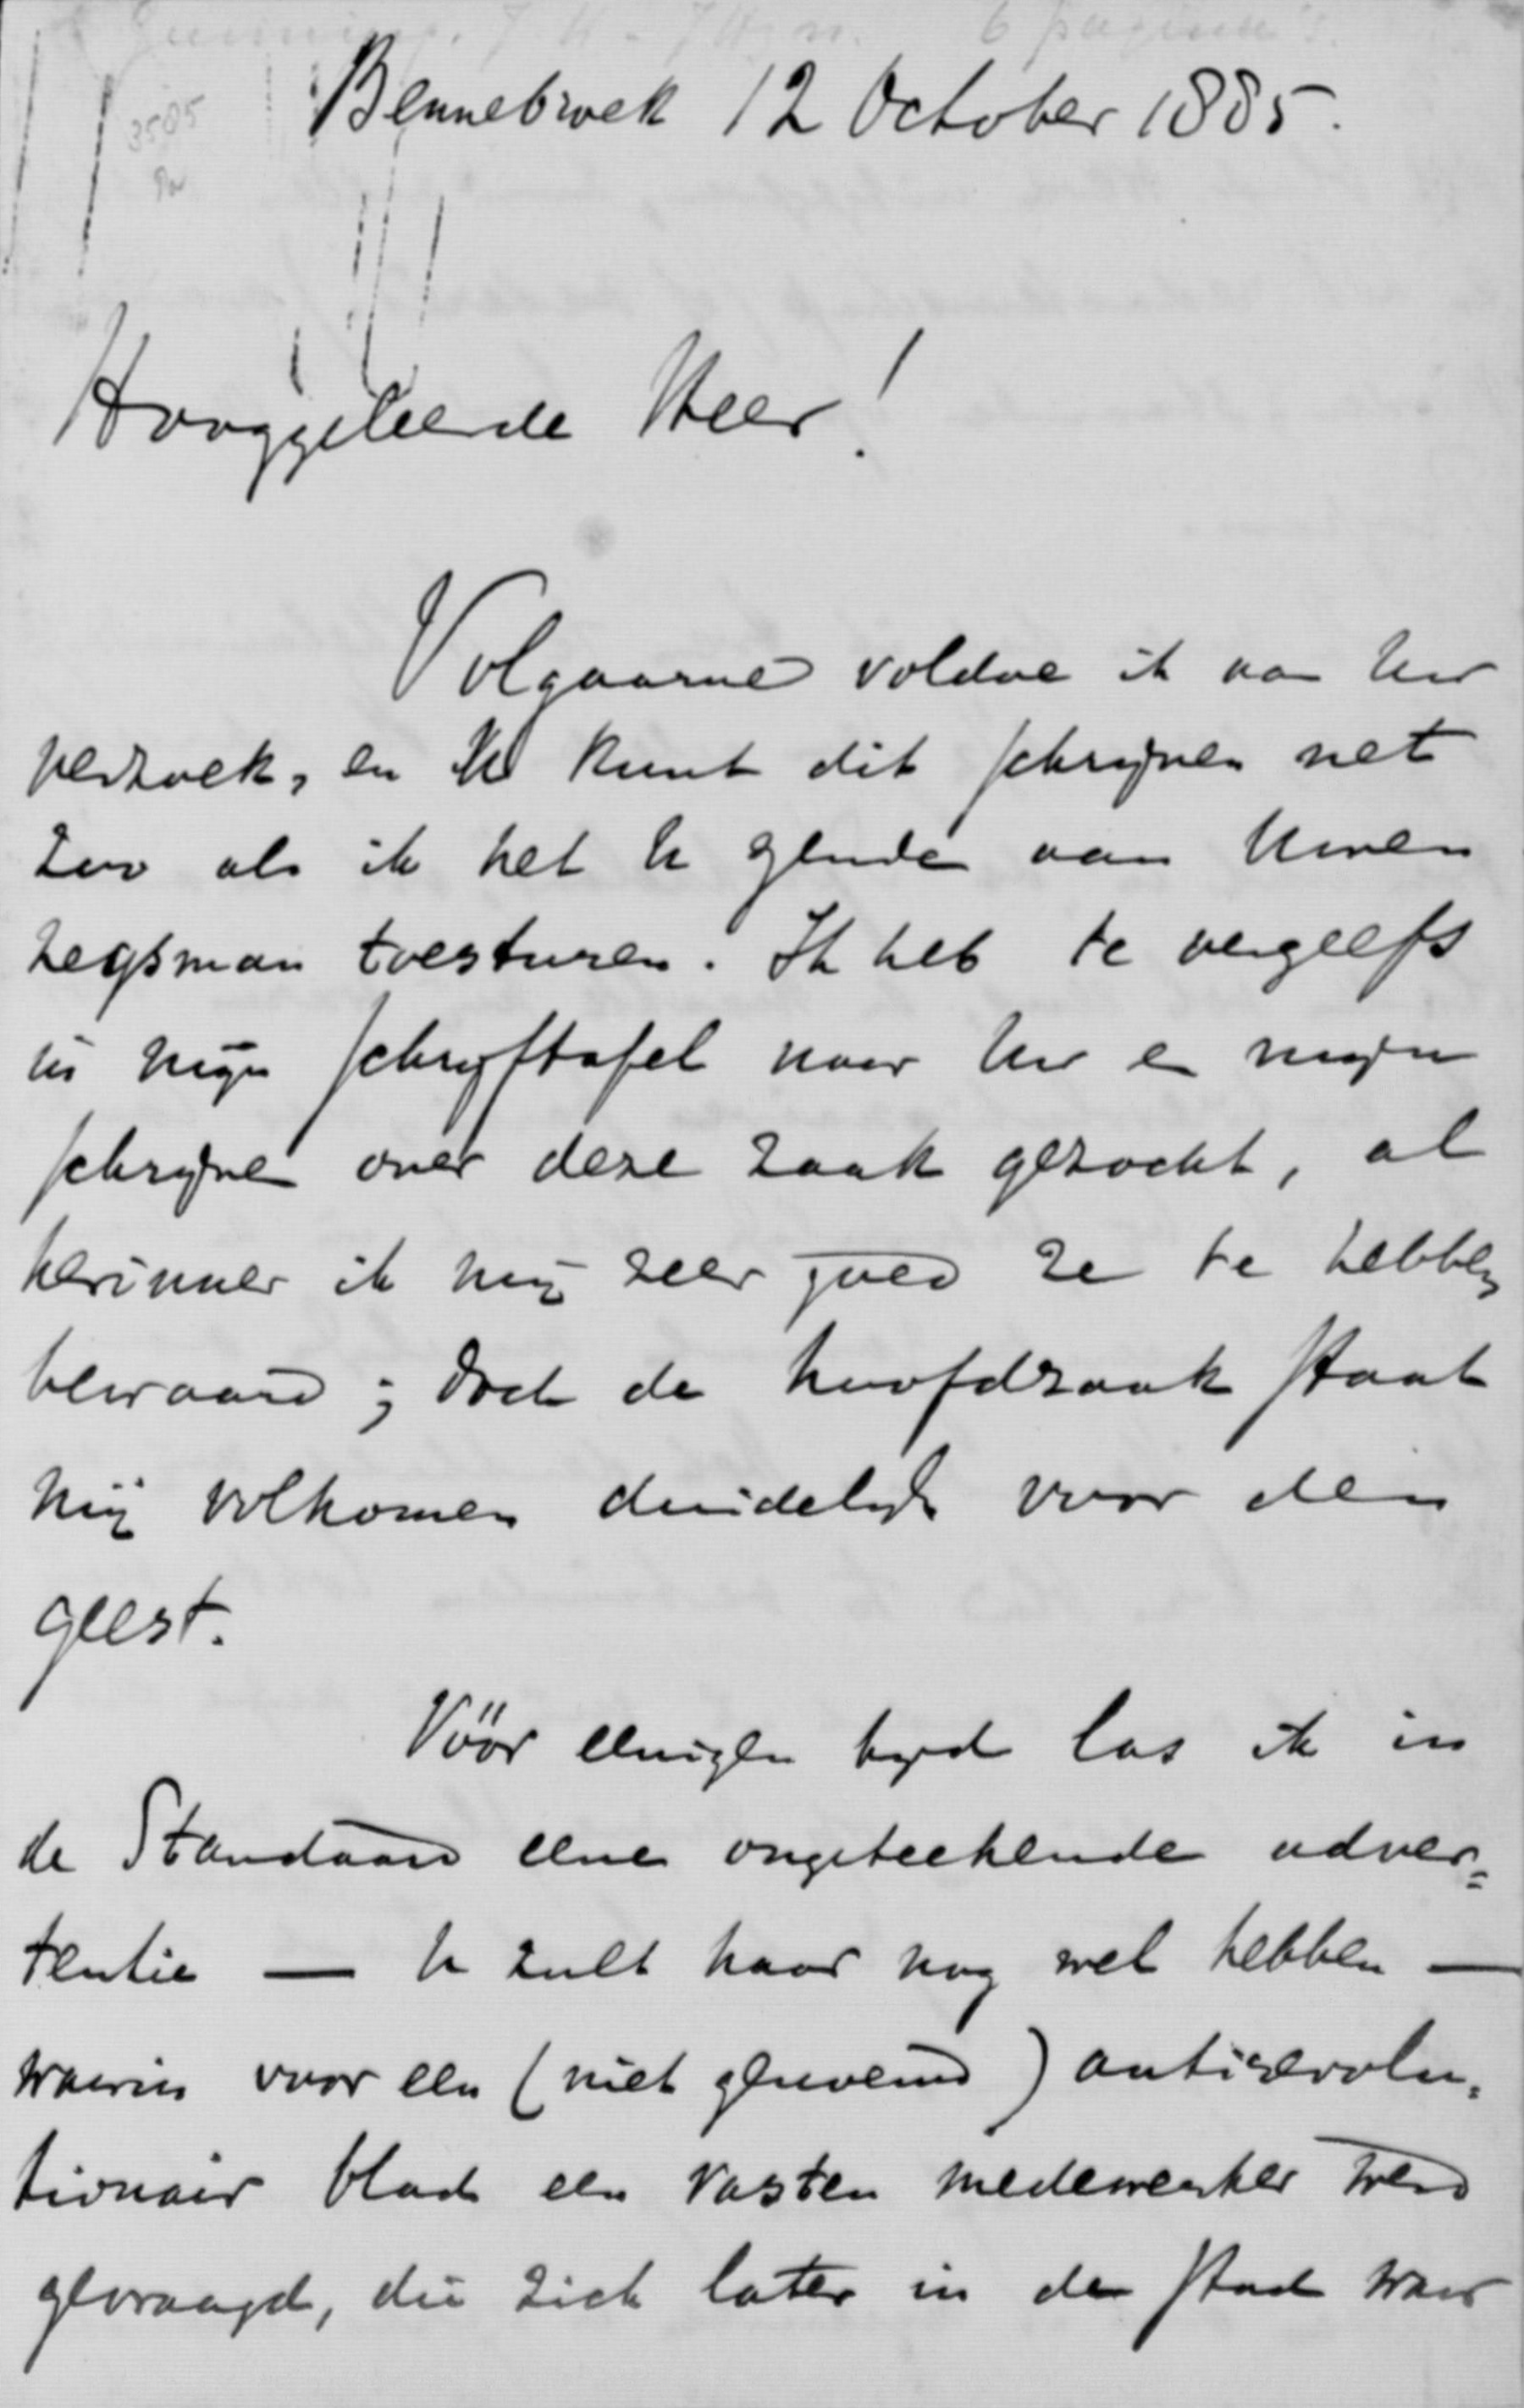 Gunning, J.H. - JHzn. 6 pagina's.
3505
Bennebroek 12 October 1885.
Hooggeleerde Heer!
Volgaarne voldoe ik aan Uw
verzoek, en U kunt dit schrijven net
zoo als ik het U zende aan Uwen
zegsman toesturen. Ik heb te vergeefs
in mijn schrijftafel naar Uw en mijn
schrijven over deze zaak gezocht, al
herinner ik mij zeer goed ze te hebben
bewaard; doch de hoofdzaak staat
mij volkomen duidelijk voor den
geest.
Vöör eenigen tijd las ik in
de Standaard eene ongeteekende adver=
tentie — U zult haar nog wel hebben —
waarin voor een (niet genoemd) antirevolu=
tionair blad een vasten medewerker werd
gevraagd, die zich later in de stad waar